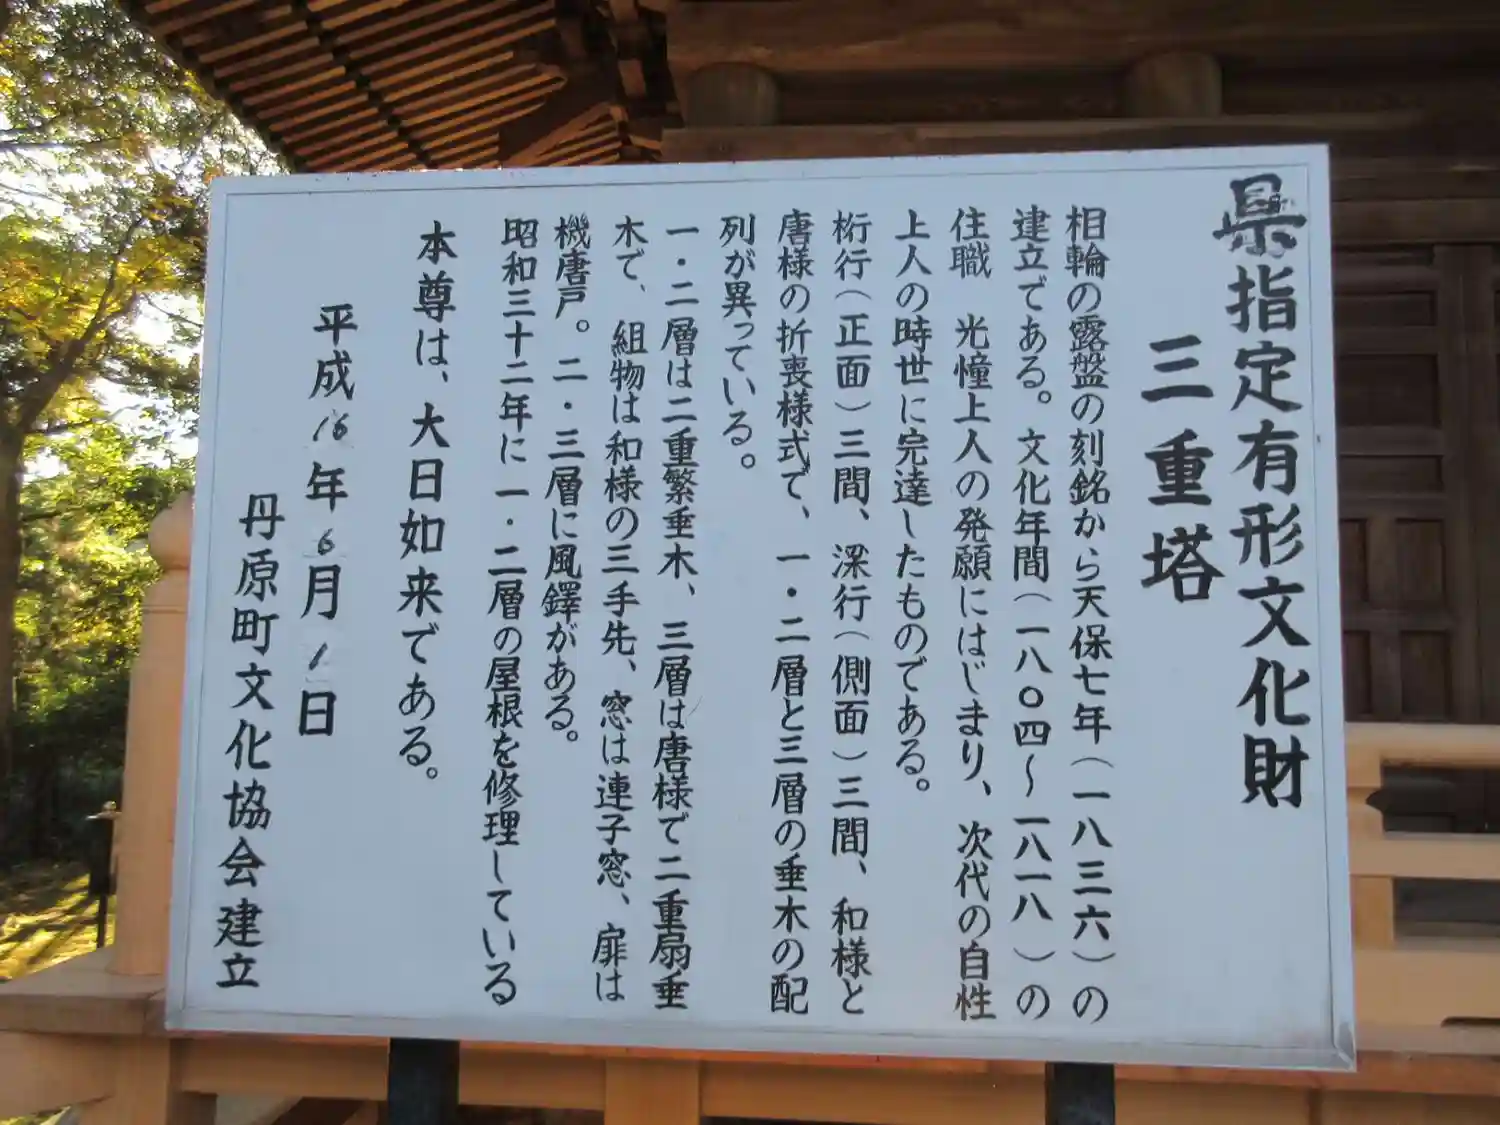 県指定有形文化財
三重塔
相輪の露盤の刻銘から天保七年(一八三六)の
建立である。文化年間(一八〇四〜一八一八)の
住職 光憧上人の発願にはじまり、次代の自性
上人の時世に完達したものである。
桁行(正面)三間、深行(側面)三間、和様と
唐様の折衷様式で、一・二層と三層の垂木の配
列が異っている。
一・二層は二重繁垂木、三層は唐様で二重扇垂
木で、組物は和様の三手先、窓は連子窓、扉は
機唐戸。二・三層に風鐸がある。
昭和三十二年に一・二層の屋根を修理している
本尊は、大日如来である。
平成16年6月1日
丹原町文化協会建立